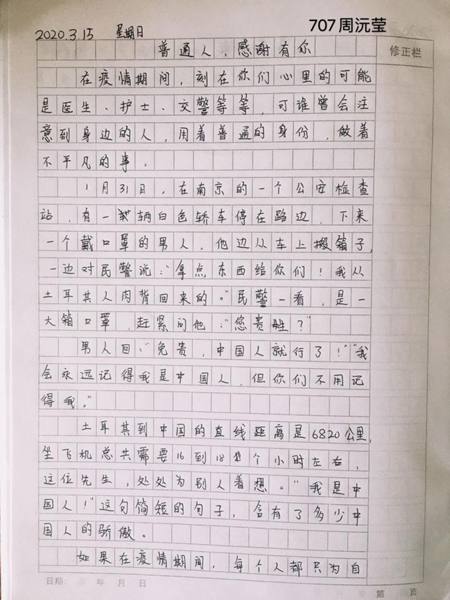 707周沅莹
2020.3.15 星期日
普通人，感谢有你
修正栏
在疫情期间，刻在你们心里的可能
是医生、护士、交警等等，可谁曾会注
意到身边的人，用着普通的身份，做着
不平凡的事。
1月31日，在南京的一个公安检查
站，有一辆白色轿车停在路边，下来
一个戴口罩的男人，他边从车上搬箱子，
一边对民警说：“拿点东西给你们！我从
土耳其人肉背回来的。”民警一看，是一
大箱口罩，赶紧问他：“您贵姓？”
男人回：“免贵，中国人就行了！”“我
会永远记得我是中国人，但你们不用记
得我。”
土耳其到中国的直线距离是6820公里，
坐飞机总共需要16到18个小时左右，
这位先生，处处为别人着想。“我是中
国人！”这句简短的句子，含有了多少中
国人的骄傲。
如果在疫情期间，每个人都只为自
日期： 年 月 日
第 页